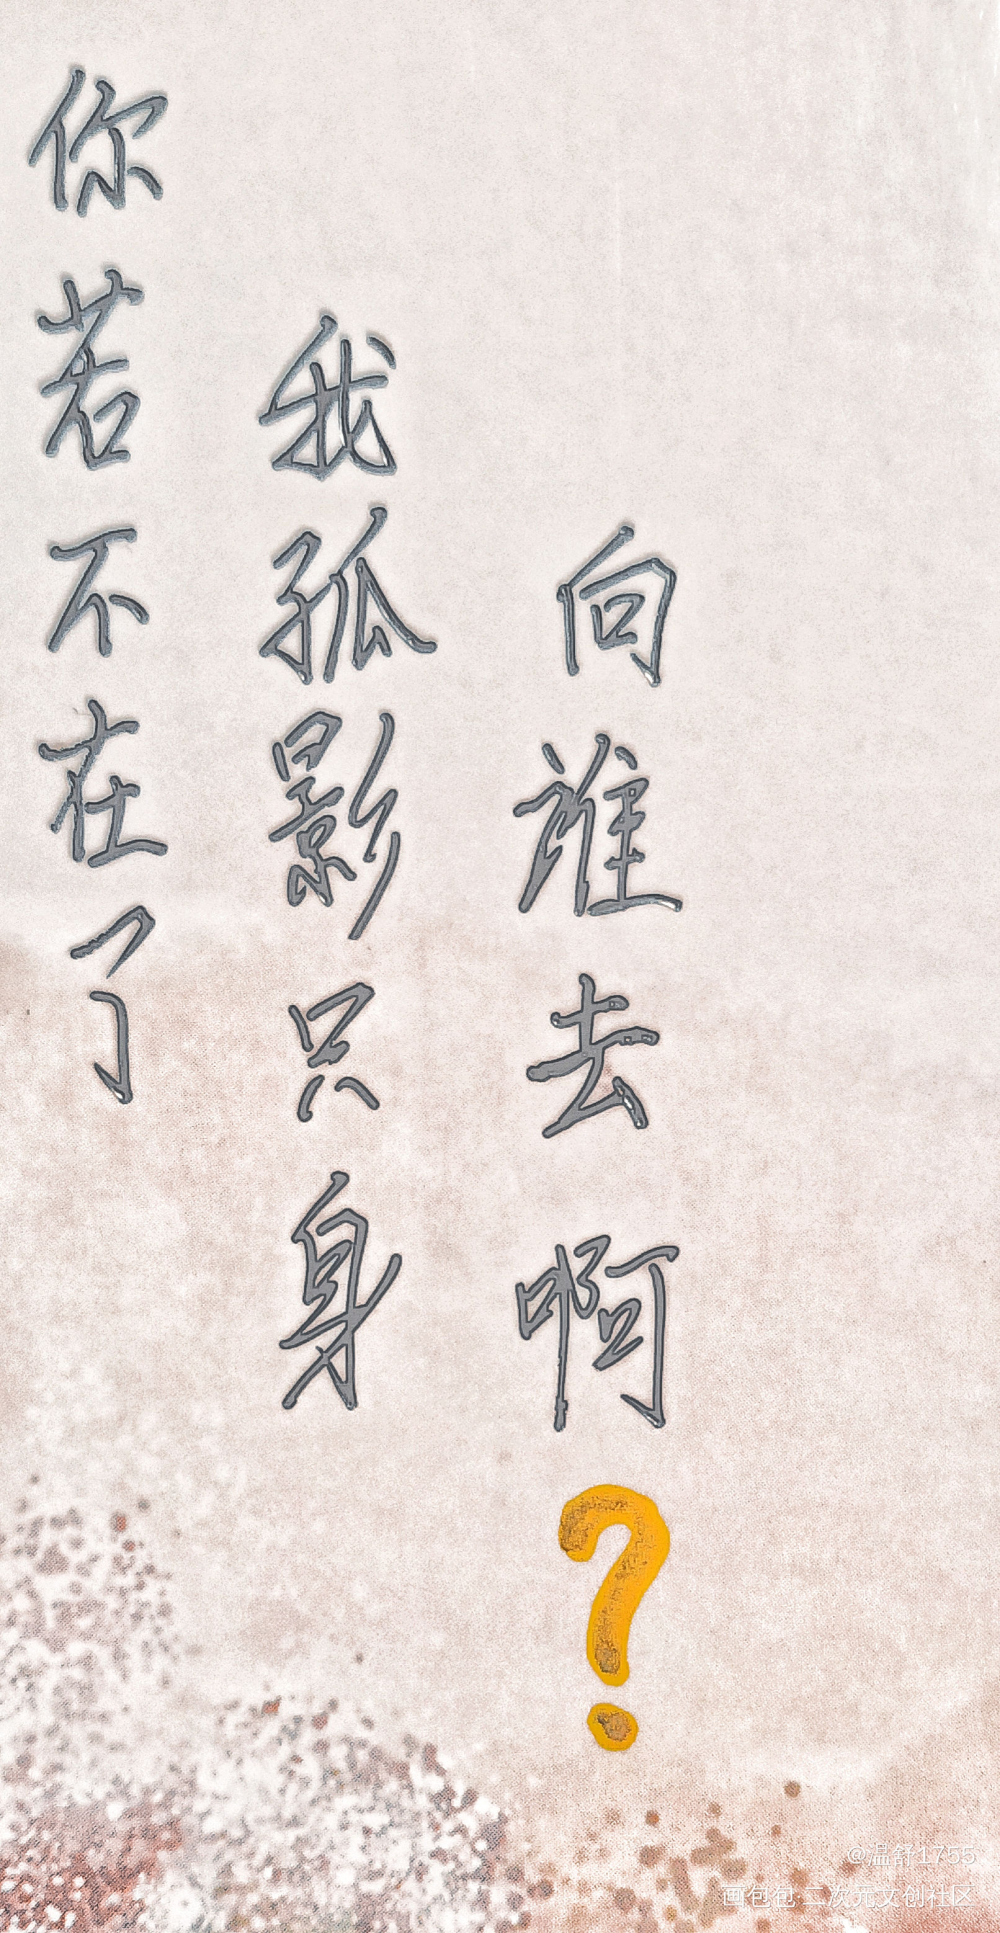 你若不在了
我孤影只身
向谁去啊?
@温舒1755
画包包·二次元文创社区